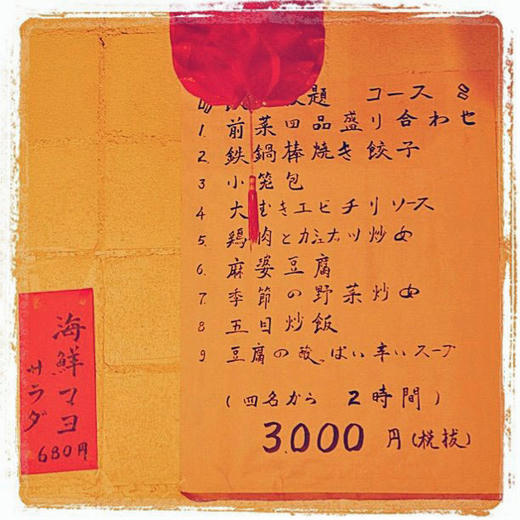 放題 コース
1 前菜四品盛り合わせ
2. 鉄鍋棒焼き餃子
3 小笼包
4 大むきエビチリソース
5. 鶏肉とカシュナッツ炒め
6. 麻婆豆腐
7. 季節の野菜炒め
8 五目炒飯
9 豆腐の酸っぱい辛いスープ
(四名から 2時間)
3.000円(税抜)
海鮮マヨ
サラダ
680円